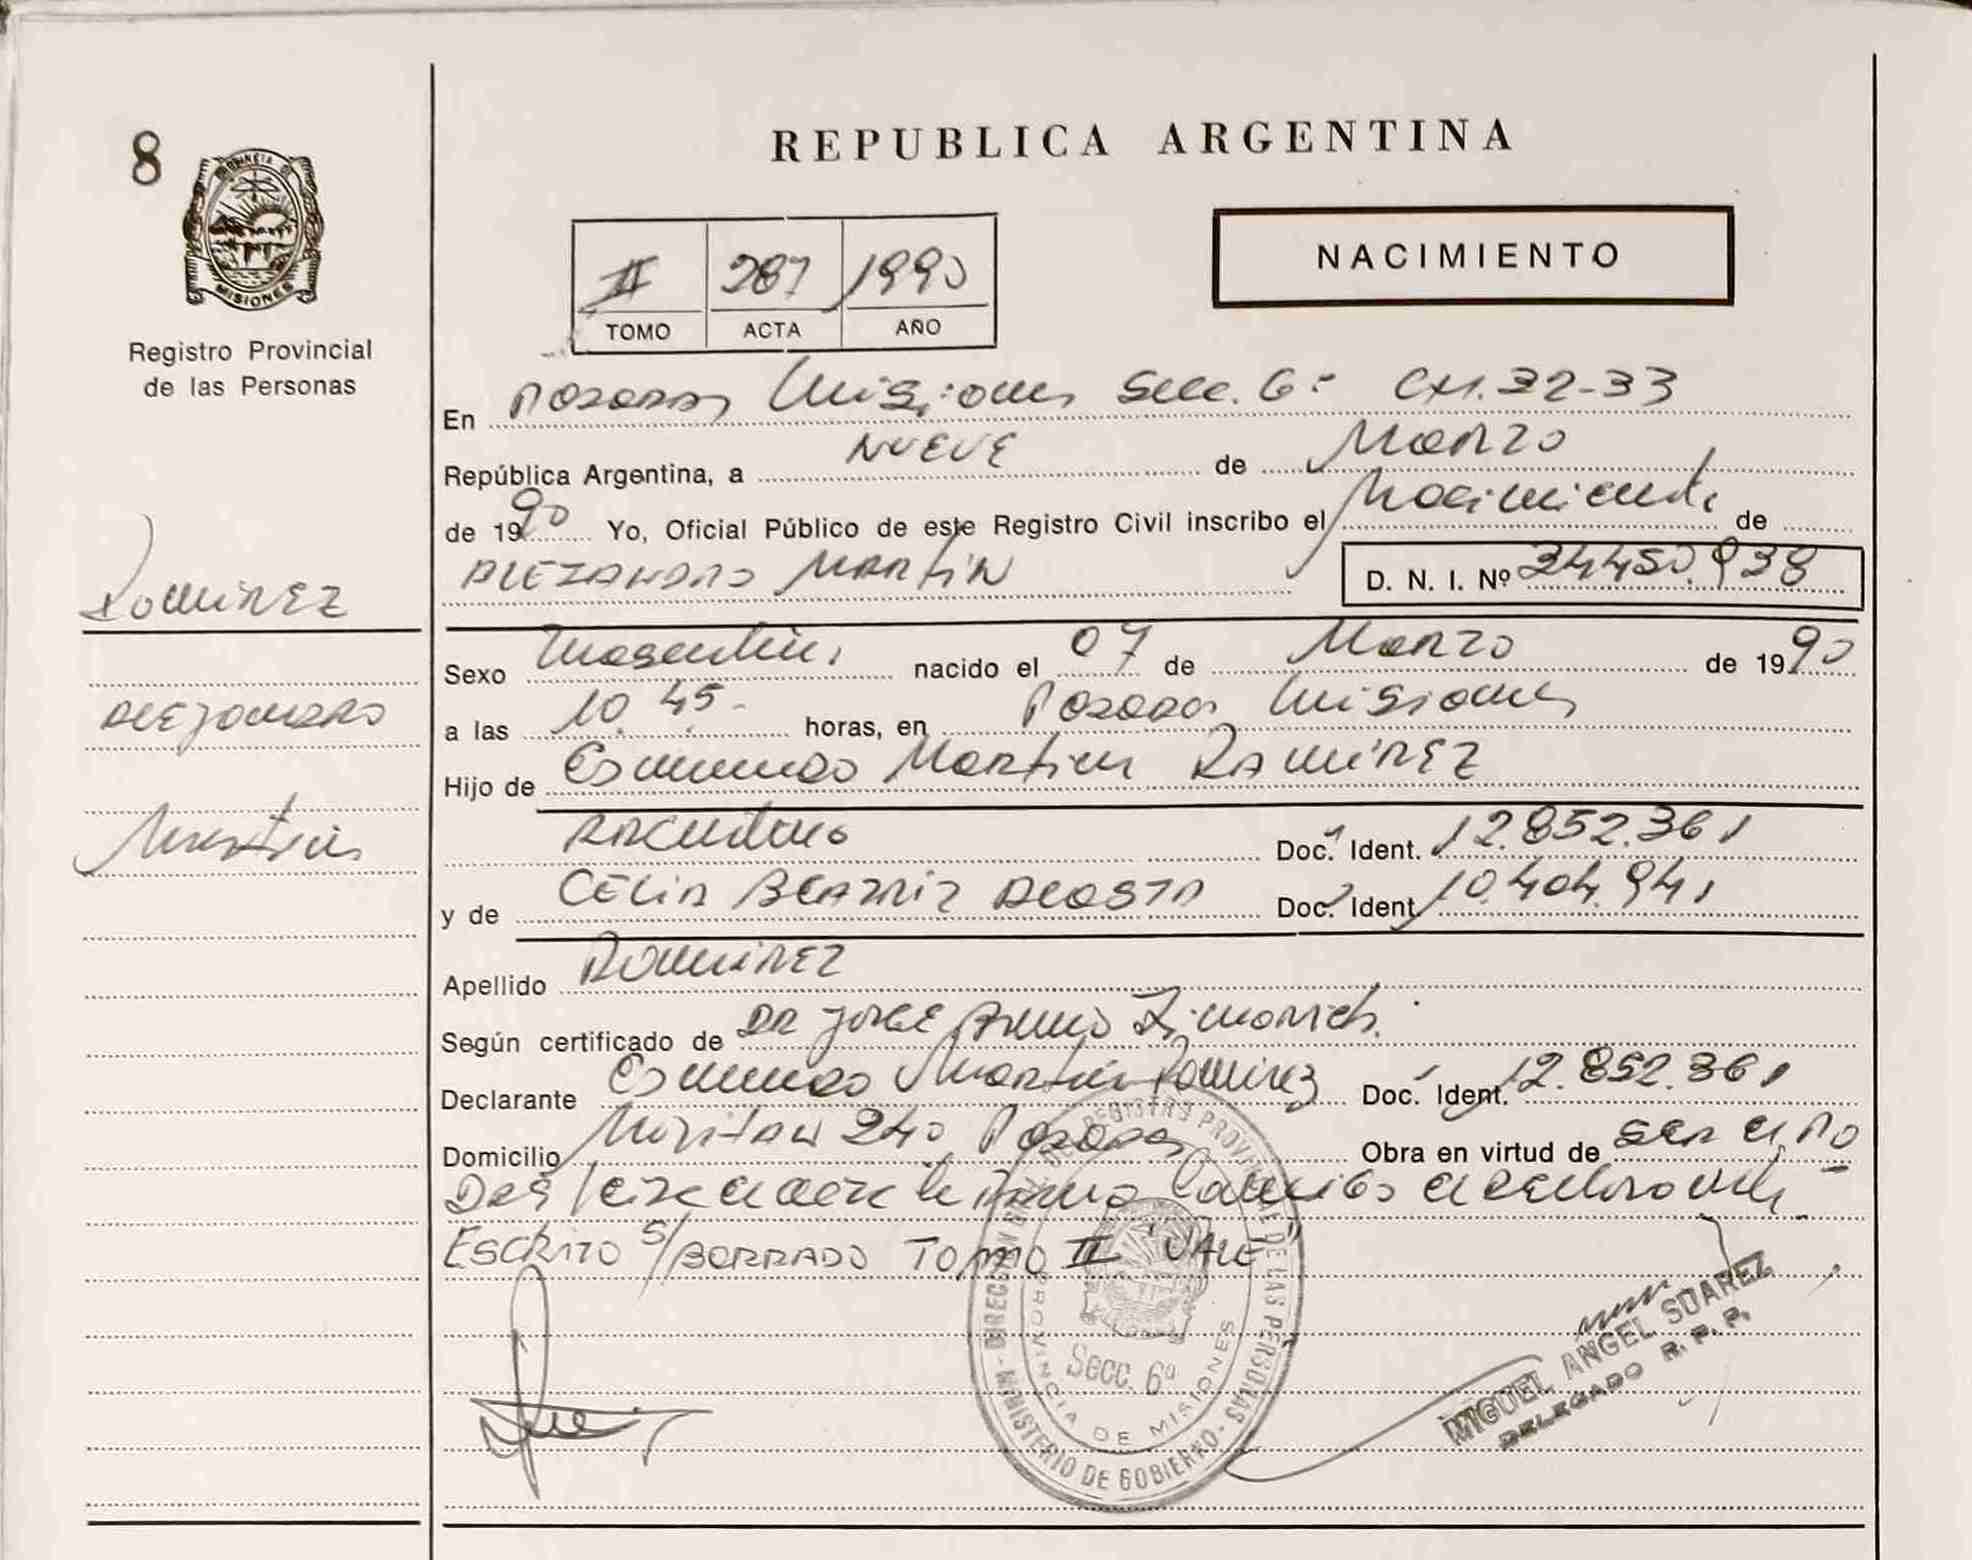 8
PROVINCIA D
MISIONES
Registro Provincial
de las Personas
RAMIREZ
ALEJANDRO
Martin
REPUBLICA ARGENTINA
NACIMIENTO
II 287 1990
TOMO ACTA AÑO
En POSADAS Misiones Secc. 6º CH. 32-33
República Argentina, a NUEVE de MARZO
de 1990 Yo, Oficial Público de este Registro Civil inscribo el Nacimiento de
ALEJANDRO MARTIN D. N. I. Nº 34.450.938
Sexo Masculino nacido el 07 de MARZO de 1990
a las 10.45.- horas, en Posadas Misiones
Hijo de Esmundo Martin RAMIREZ
ARGENTINO Doc. Ident. 12.852.361
y de CELIA BEATRIZ ACOSTA Doc. Ident. 10.404.941
Apellido RAMIREZ
Según certificado de DR JORGE
Declarante Esmundo Martin Ramirez Doc. Ident. 12.852.361
Domicilio 240 Posadas Obra en virtud de SER EL PA
DRE
ESCRITO S/BORRADO TOMO II "VALE"
DIRECCION REGISTRO PROVINCIAL DE LAS PERSONAS
MINISTERIO DE GOBIERNO
PROVINCIA DE MISIONES
Secc. 6º
MIGUEL ANGEL SUAREZ
DELEGADO R. P. P.